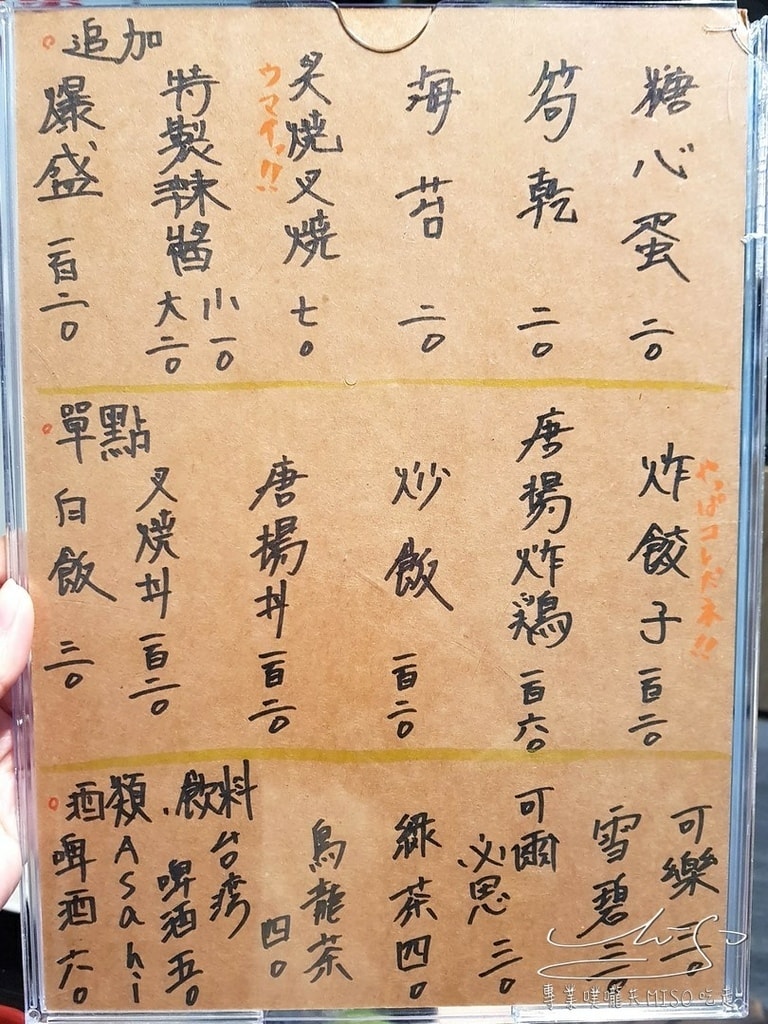 追加
糖心蛋 二〇
筍乾 二〇
海苔 二〇
炙燒叉燒 七〇
ウマイッ!!
特製辣醬 小一〇
大二〇
爆盛 一百二〇
單點
やっぱコレだネ!!
炸餃子 一百二〇
唐揚炸鶏 一百六〇
炒飯 一百二〇
唐揚丼 一百二〇
叉燒丼 一百二〇
白飯 三〇
酒類.飲料
可樂 三〇
雪碧 三〇
可爾
必思 三〇
綠茶 四〇
烏龍茶
四〇
台湾
啤酒 五〇
Asahi
啤酒 六〇
專業噗嚨共MISO吃起